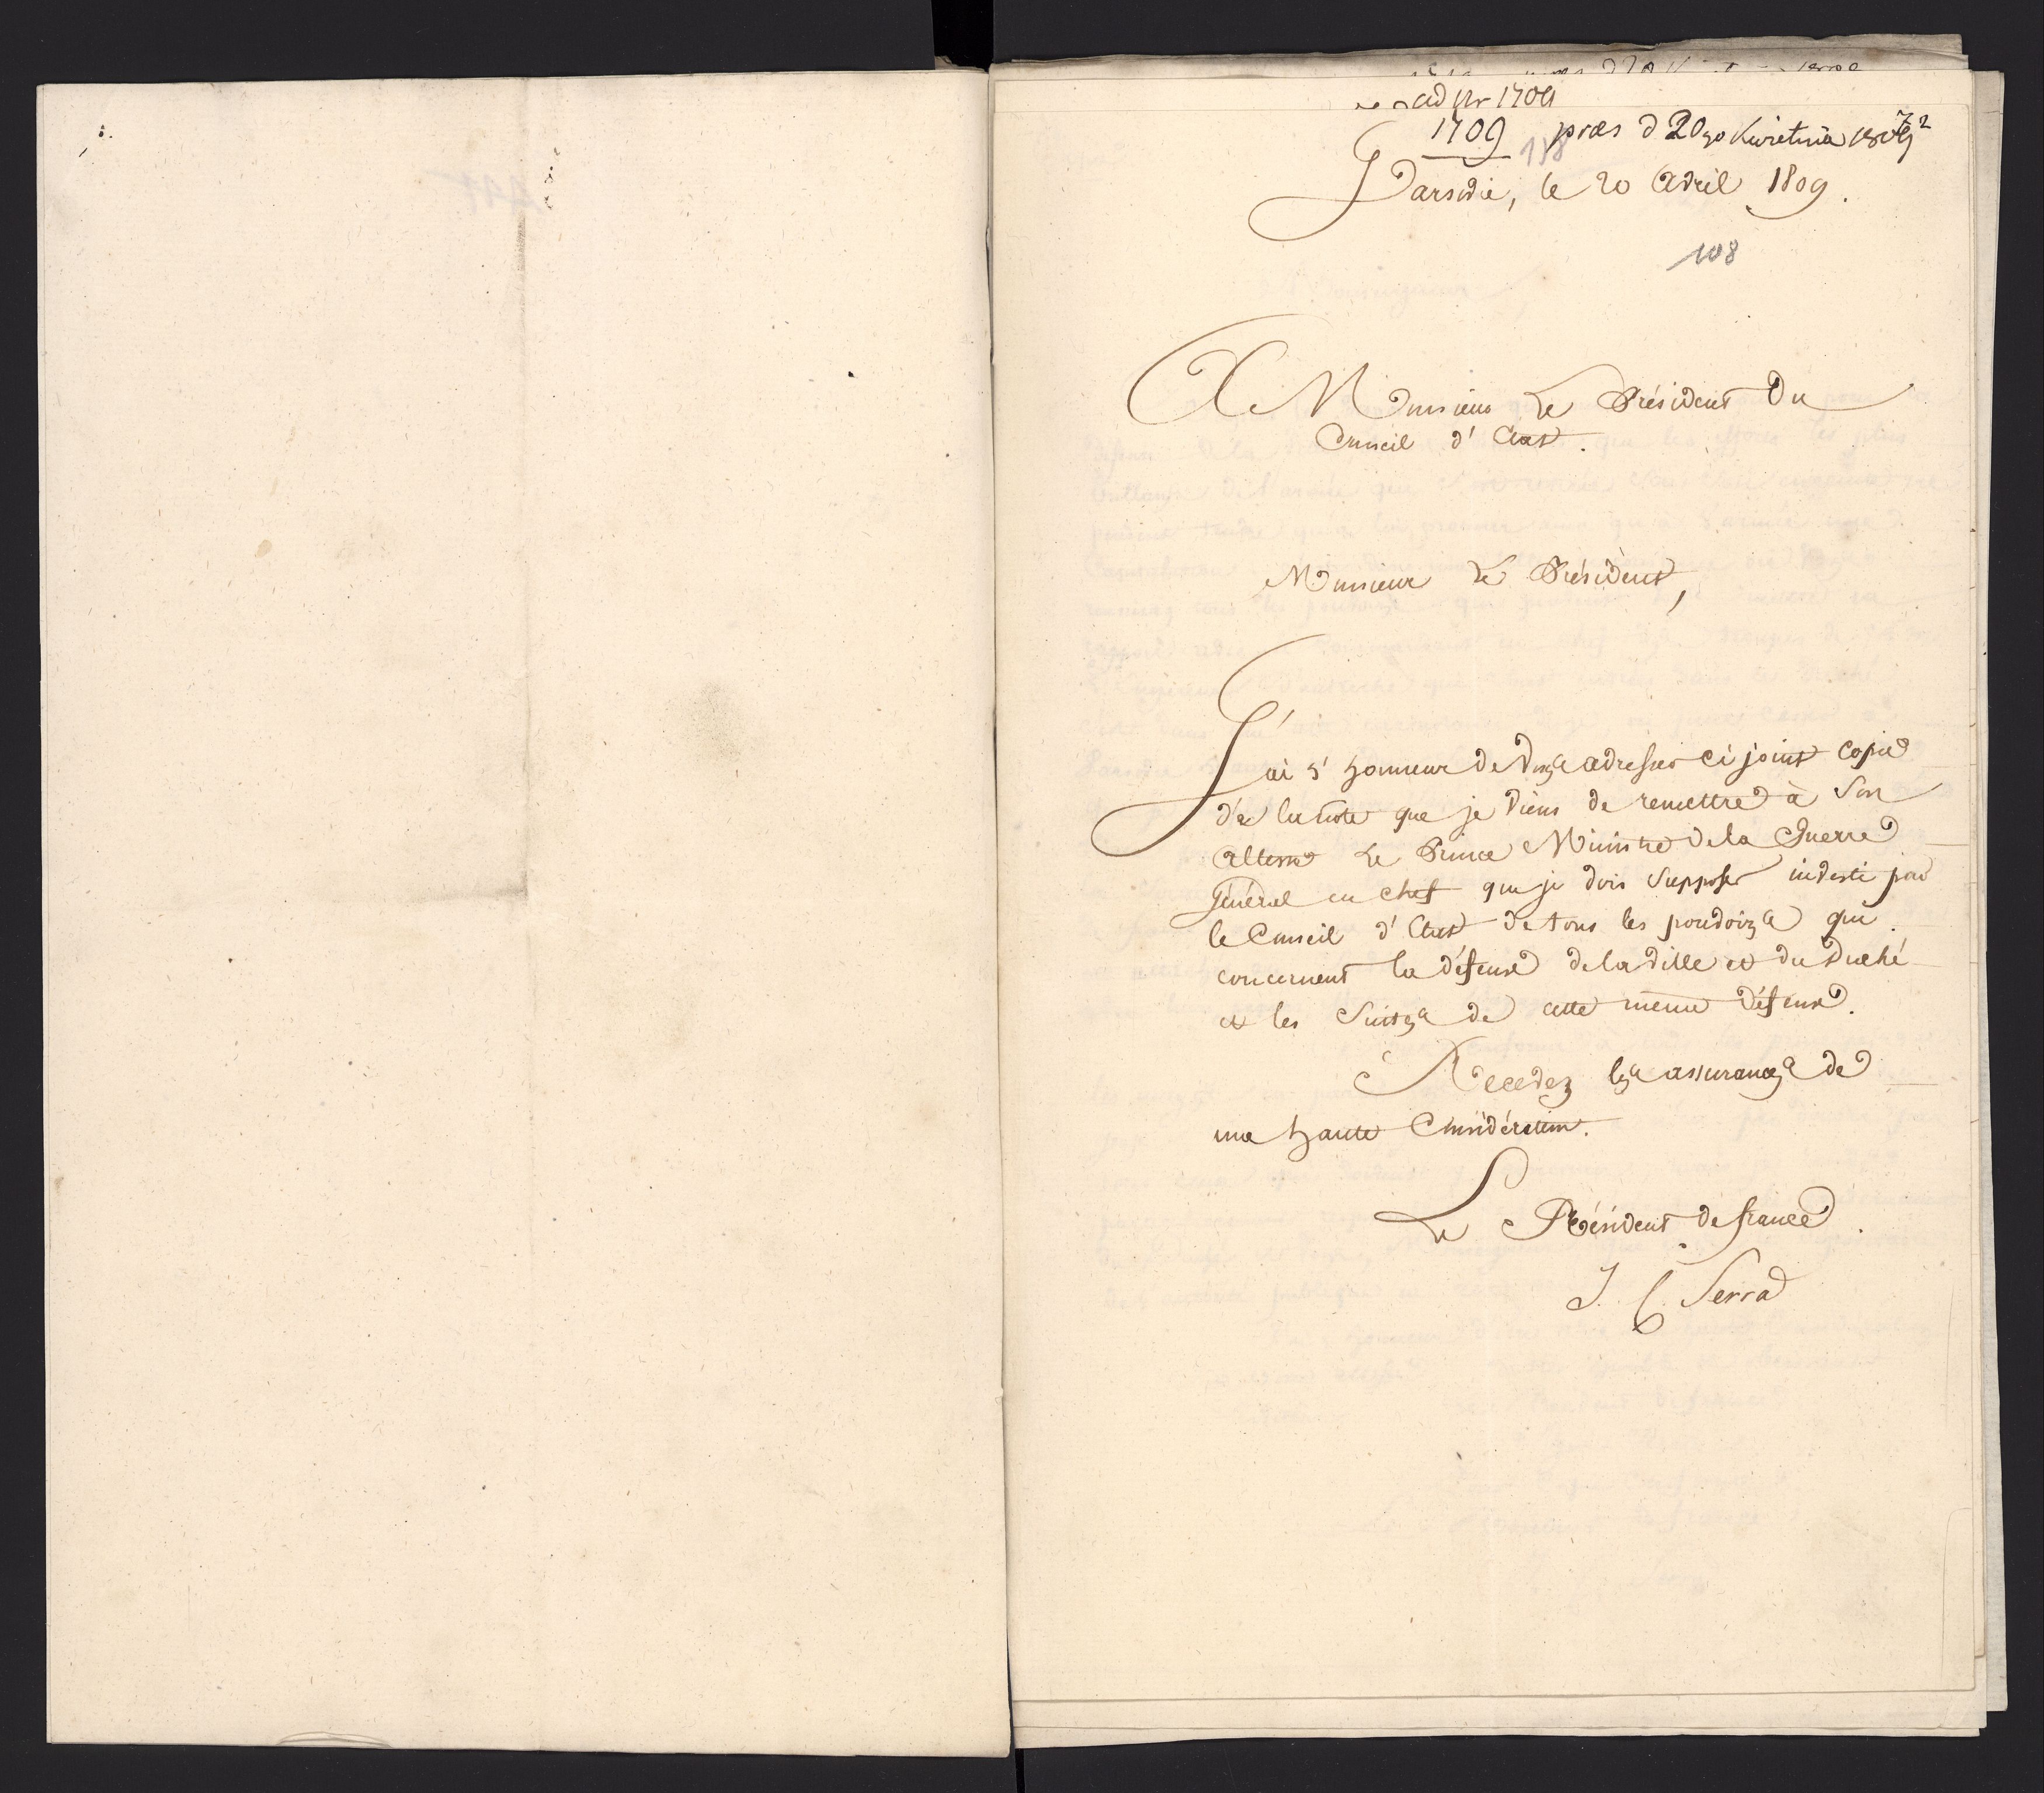 ad Nr 1709
1709 præs d 20go Kwietnia 1809
118
Varsovie, le 20 Avril 1809.
108
A Monsieur Le Président Du
Conseil d'Etat.
Monsieur Le Président,
J'ai l'honneur de vous adresser ci joint copie
de la note que je viens de remettre à Son
Altesse Le Prince Ministre de la Guerre
Général en chef que je dois supposer investi par
le Conseil d'Etat de tous les pouvoirs qui
concernent la défense de la ville et du Duché
et les suites de cette même défense.
Recevez les assurances de
ma haute Considération.
Le Résident de france
J. C. Serra